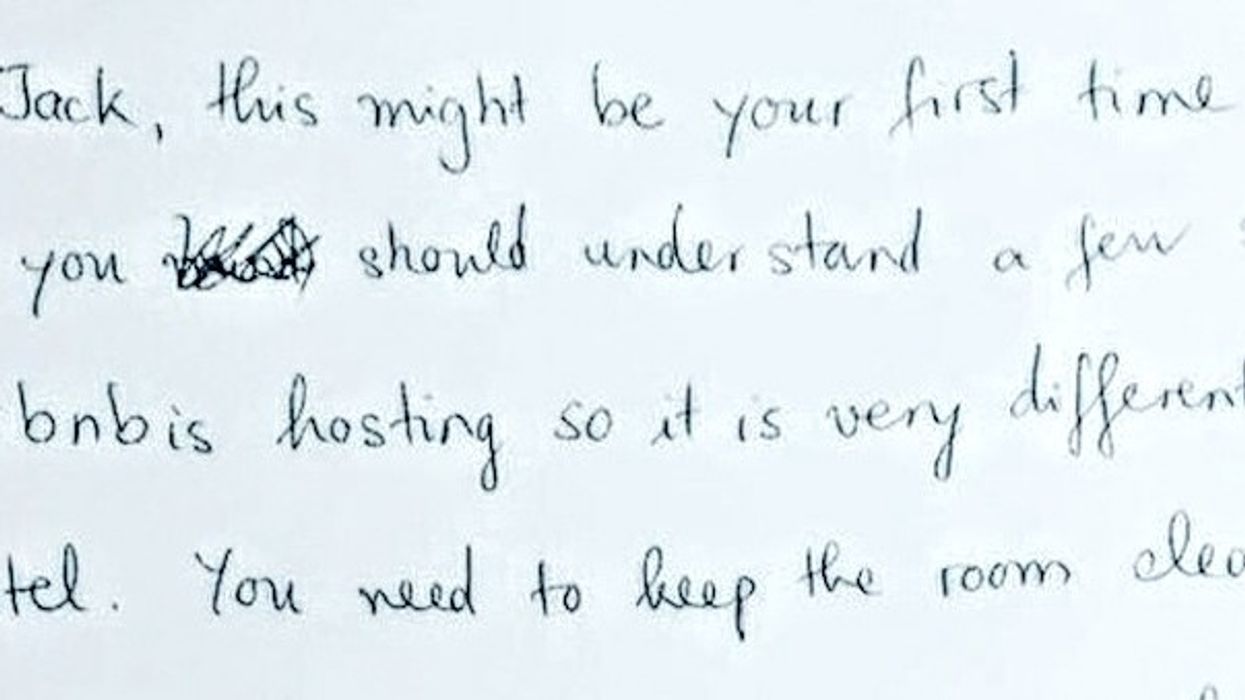 Jack, this might be your first time
you should understand a few
bnb is hosting so it is very different
tel. You need to keep the room clea